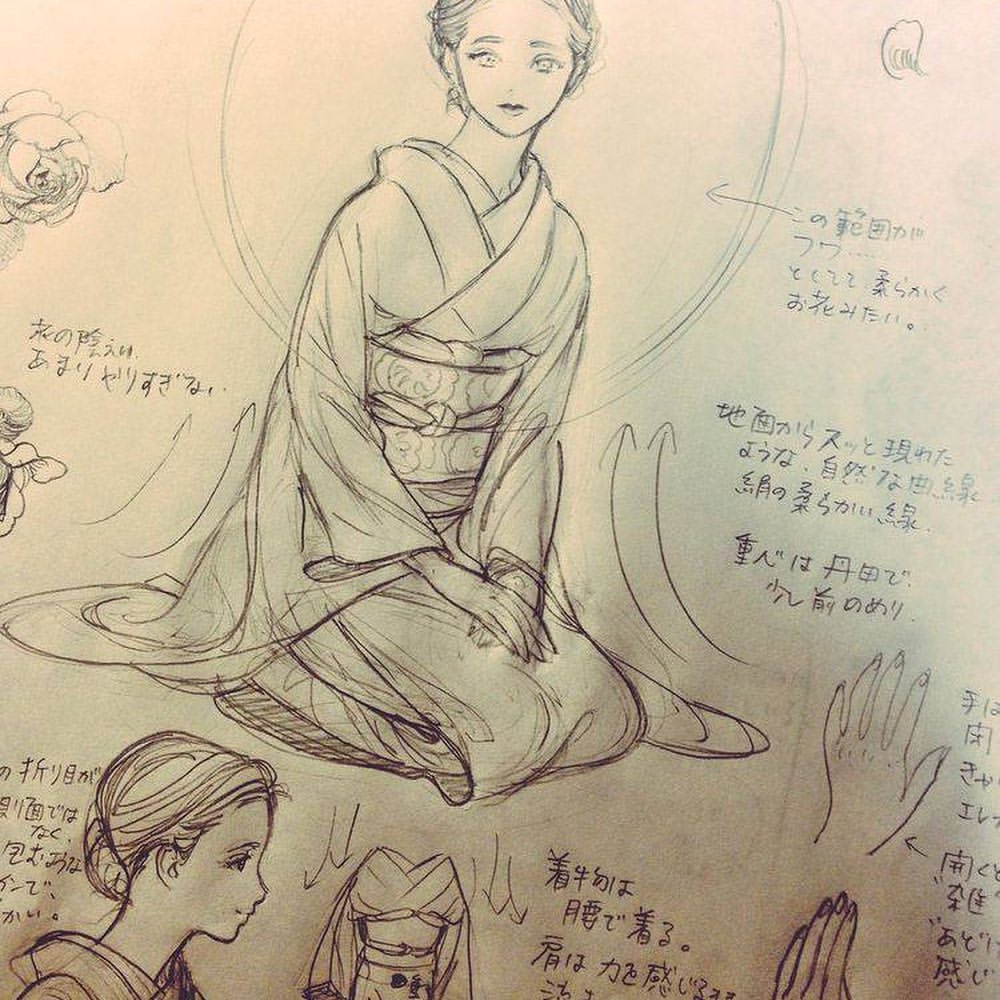 この範囲が
フワ....
としてて柔らかく
お花みたい。
あまりやりすぎない
地面からスッと現れた
ような、自然な曲線
絹の柔らかい線
重心は丹田で、
少し前のめり
の折り目が
では
なく、
包むような
かい。
着物は
腰で着る。
肩は力を感じ
手は
開
開くと
"雑"
感じ